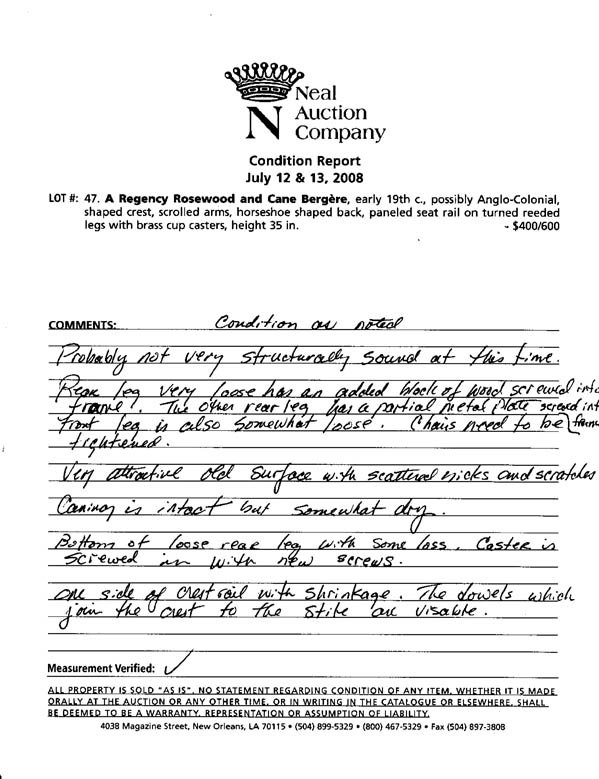 Neal
Auction
N Company
Condition Report
July 12 & 13, 2008
LOT #: 47. A Regency Rosewood and Cane Bergère, early 19th c., possibly Anglo-Colonial,
shaped crest, scrolled arms, horseshoe shaped back, paneled seat rail on turned reeded
legs with brass cup casters, height 35 in. - $400/600
COMMENTS: Condition as noted
Probably not very structurally sound at this time.
Rear leg very loose has an added block of wood screwed into
frame. The other rear leg has a partial metal plate screwed int
front leg is also somewhat loose. Chairs need to be (frame
tightened.
Very attractive old surface with scattered nicks and scratches
Caning is intact but somewhat dry.
Bottom of loose rear leg with some loss. Caster is
screwed in with new screws.
one side of crest rail with shrinkage. The dowels which
join the crest to the stile are visable.
Measurement Verified: ✓
ALL PROPERTY IS SOLD "AS IS". NO STATEMENT REGARDING CONDITION OF ANY ITEM, WHETHER IT IS MADE
ORALLY AT THE AUCTION OR ANY OTHER TIME, OR IN WRITING IN THE CATALOGUE OR ELSEWHERE, SHALL
BE DEEMED TO BE A WARRANTY, REPRESENTATION OR ASSUMPTION OF LIABILITY.
4038 Magazine Street, New Orleans, LA 70115 • (504) 899-5329 • (800) 467-5329 • Fax (504) 897-3808